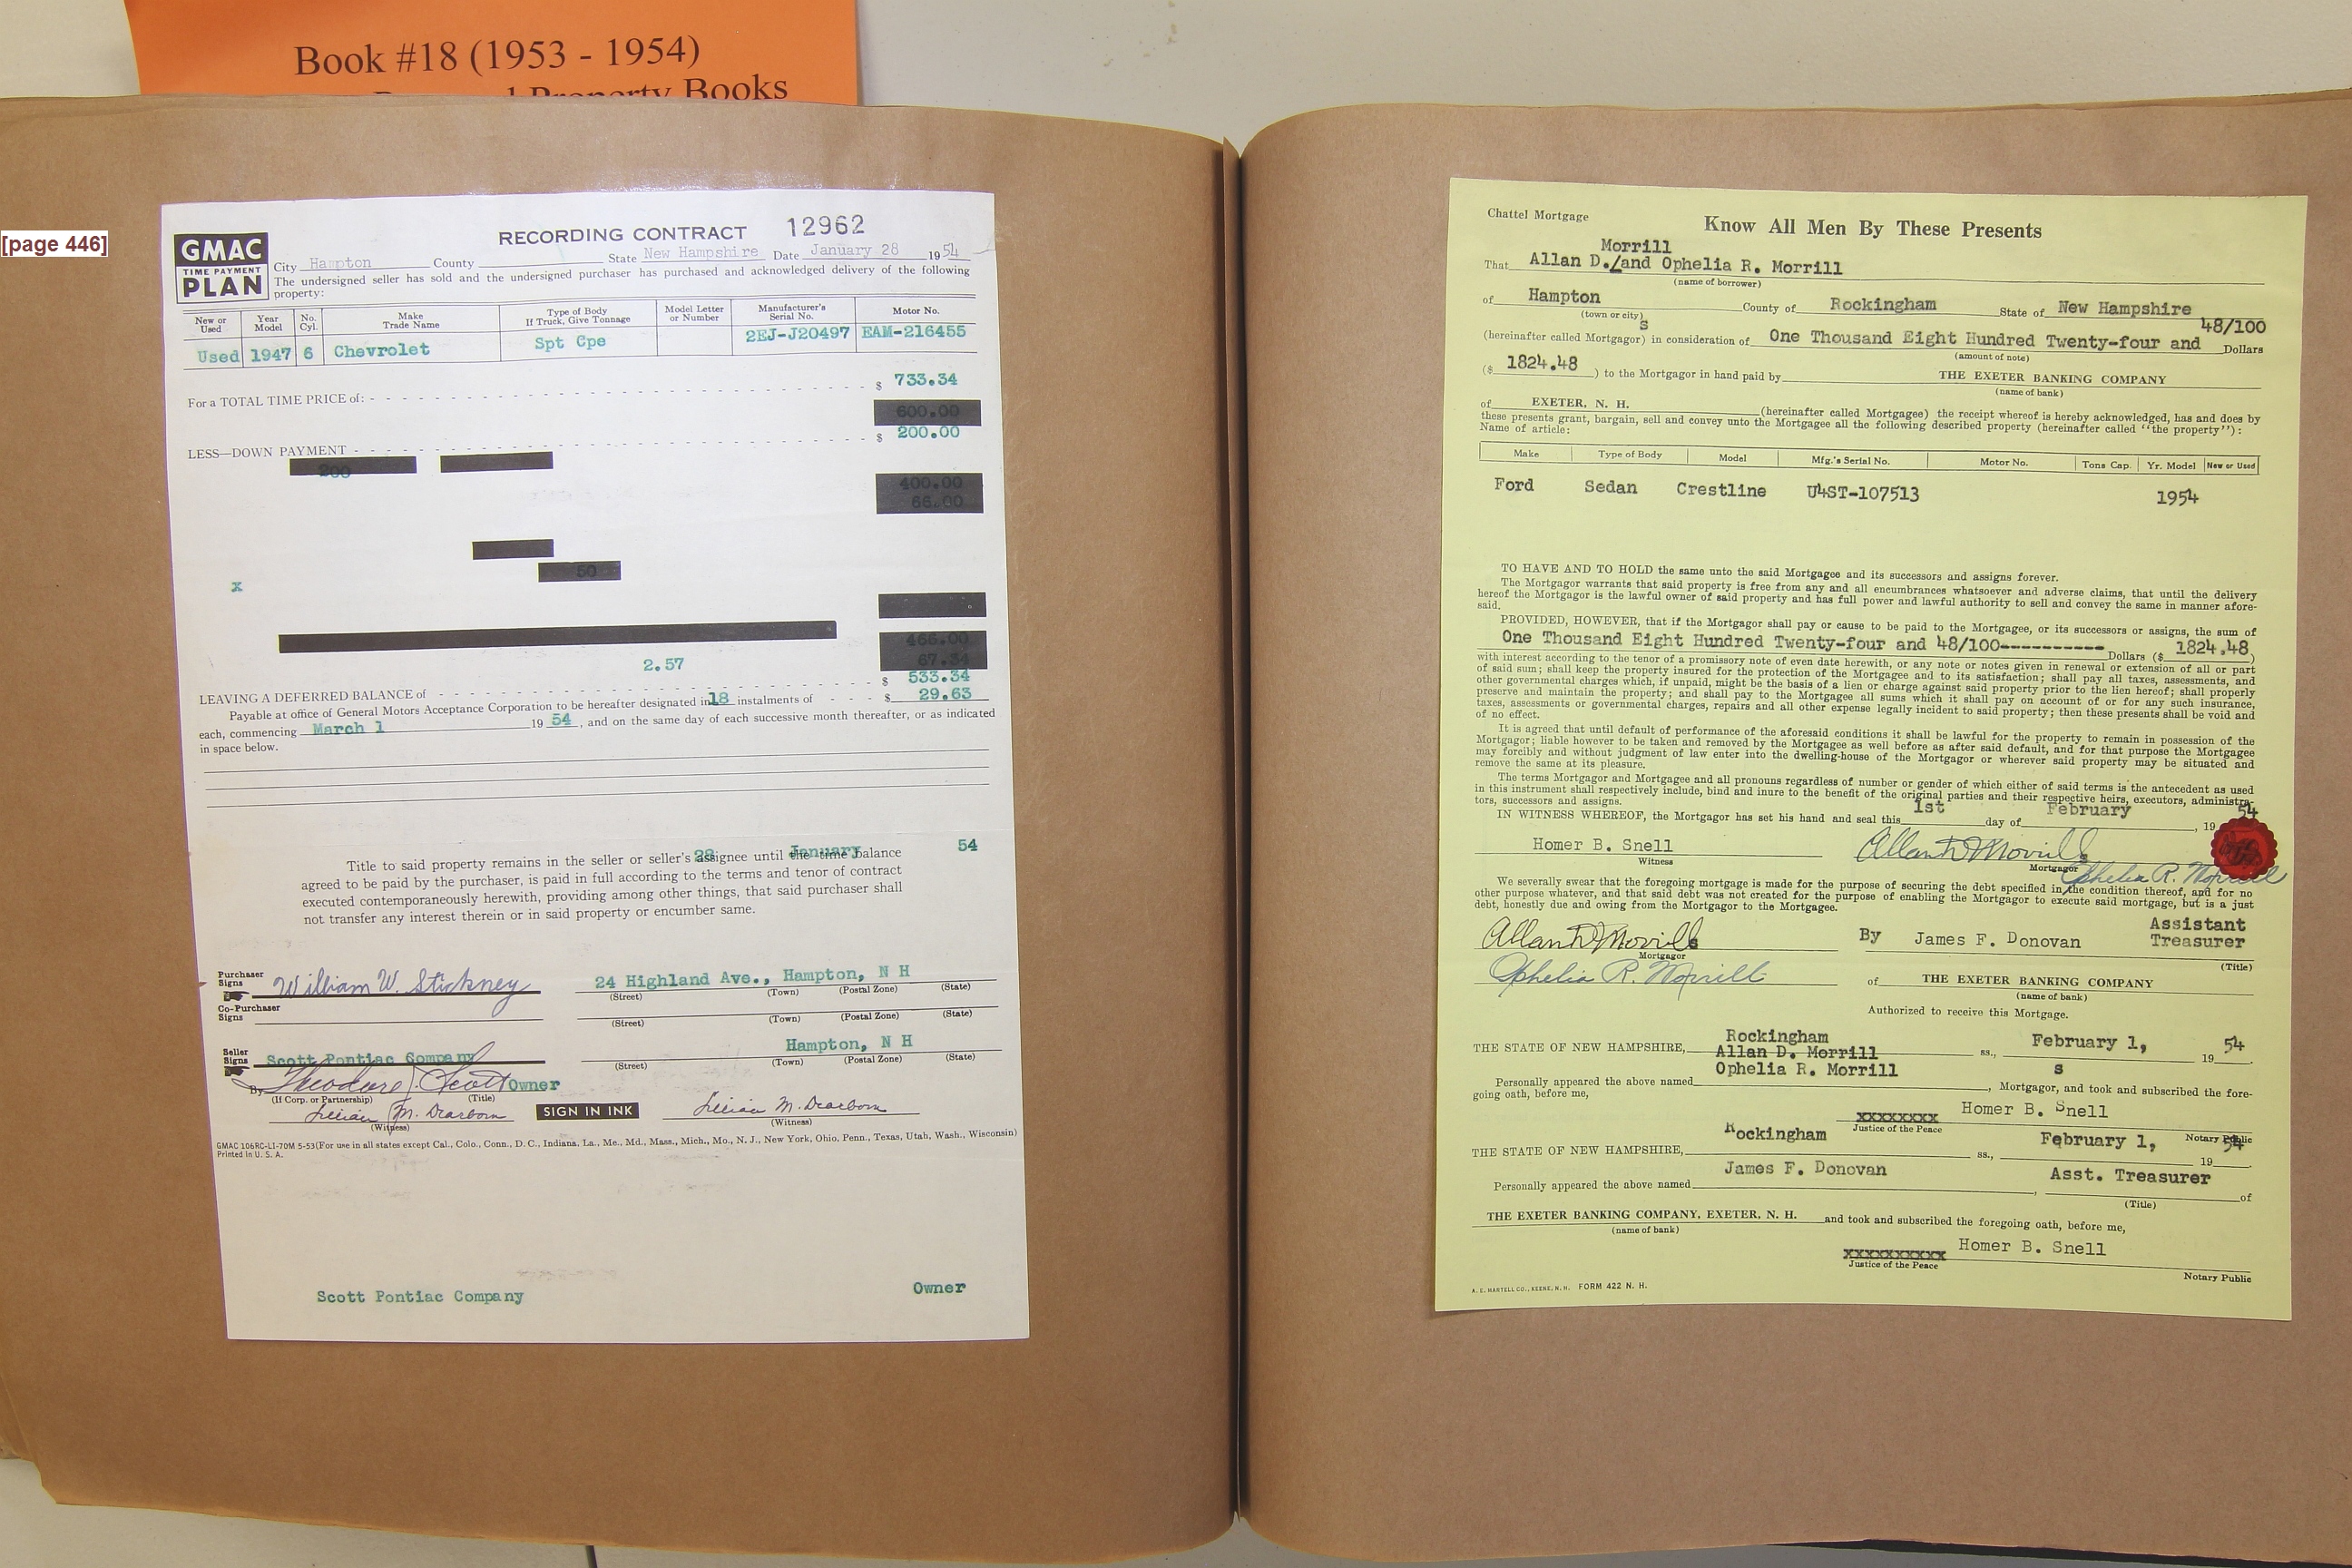 Book #18 (1953 - 1954)
Property Books
[page 446]
GMAC
TIME PAYMENT
PLAN
RECORDING CONTRACT 12962
City Hampton County State New Hampshire Date January 28 1954
The undersigned seller has sold and the undersigned purchaser has purchased and acknowledged delivery of the following
property:
New or Used Year Model No. Cyl. Make Trade Name Type of Body If Truck, Give Tonnage Model Letter or Number Manufacturer's Serial No. Motor No.
Used 1947 6 Chevrolet Spt Cpe 2EJ-J20497 EAM-216455
For a TOTAL TIME PRICE of: $ 733.34
600.00
LESS—DOWN PAYMENT $ 200.00
200
400.00
66.00
50
x
466.00
67.34
2.57
LEAVING A DEFERRED BALANCE of $ 533.34
Payable at office of General Motors Acceptance Corporation to be hereafter designated in 18 instalments of $ 29.63
each, commencing March 1 1954, and on the same day of each successive month thereafter, or as indicated
in space below.
28 January 54
Title to said property remains in the seller or seller's assignee until the time balance
agreed to be paid by the purchaser, is paid in full according to the terms and tenor of contract
executed contemporaneously herewith, providing among other things, that said purchaser shall
not transfer any interest therein or in said property or encumber same.
Purchaser Signs William W. Stickney 24 Highland Ave., Hampton, N H
(Street) (Town) (Postal Zone) (State)
Co-Purchaser Signs
(Street) (Town) (Postal Zone) (State)
Seller Signs Scott Pontiac Company Hampton, N H
(Street) (Town) (Postal Zone) (State)
By Theodore J. Scott Owner
(If Corp. or Partnership) (Title)
Lillian M. Dearborn SIGN IN INK Lillian M. Dearborn
(Witness) (Witness)
GMAC 106RC-LI-70M 5-53 (For use in all states except Cal., Colo., Conn., D. C., Indiana, La., Me., Md., Mass., Mich., Mo., N. J., New York, Ohio, Penn., Texas, Utah, Wash., Wisconsin)
Printed in U. S. A.
Scott Pontiac Company Owner
Chattel Mortgage
Know All Men By These Presents
Morrill
That Allan D./and Ophelia R. Morrill
(name of borrower)
of Hampton County of Rockingham State of New Hampshire
(town or city)
s 48/100
(hereinafter called Mortgagor) in consideration of One Thousand Eight Hundred Twenty-four and Dollars
(amount of note)
($ 1824.48 ) to the Mortgagor in hand paid by THE EXETER BANKING COMPANY
(name of bank)
of EXETER, N. H. (hereinafter called Mortgagee) the receipt whereof is hereby acknowledged, has and does by
these presents grant, bargain, sell and convey unto the Mortgagee all the following described property (hereinafter called "the property"):
Name of article:
Make Type of Body Model Mfg.'s Serial No. Motor No. Tons Cap. Yr. Model New or Used
Ford Sedan Crestline U4ST-107513 1954
TO HAVE AND TO HOLD the same unto the said Mortgagee and its successors and assigns forever.
The Mortgagor warrants that said property is free from any and all encumbrances whatsoever and adverse claims, that until the delivery
hereof the Mortgagor is the lawful owner of said property and has full power and lawful authority to sell and convey the same in manner afore-
said.
PROVIDED, HOWEVER, that if the Mortgagor shall pay or cause to be paid to the Mortgagee, or its successors or assigns, the sum of
One Thousand Eight Hundred Twenty-four and 48/100---------- Dollars ($ 1824.48 )
with interest according to the tenor of a promissory note of even date herewith, or any note or notes given in renewal or extension of all or part
of said sum; shall keep the property insured for the protection of the Mortgagee and to its satisfaction; shall pay all taxes, assessments, and
other governmental charges which, if unpaid, might be the basis of a lien or charge against said property prior to the lien hereof; shall properly
preserve and maintain the property; and shall pay to the Mortgagee all sums which it shall pay on account of or for any such insurance,
taxes, assessments or governmental charges, repairs and all other expense legally incident to said property; then these presents shall be void and
of no effect.
It is agreed that until default of performance of the aforesaid conditions it shall be lawful for the property to remain in possession of the
Mortgagor; liable however to be taken and removed by the Mortgagee as well before as after said default, and for that purpose the Mortgagee
may forcibly and without judgment of law enter into the dwelling-house of the Mortgagor or wherever said property may be situated and
remove the same at its pleasure.
The terms Mortgagor and Mortgagee and all pronouns regardless of number or gender of which either of said terms is the antecedent as used
in this instrument shall respectively include, bind and inure to the benefit of the original parties and their respective heirs, executors, administra-
tors, successors and assigns.
IN WITNESS WHEREOF, the Mortgagor has set his hand and seal this 1st day of February, 1954
Homer B. Snell Allan D Morrill
Witness Mortgagor s
Ophelia R. Morrill
We severally swear that the foregoing mortgage is made for the purpose of securing the debt specified in the condition thereof, and for no
other purpose whatever, and that said debt was not created for the purpose of enabling the Mortgagor to execute said mortgage, but is a just
debt, honestly due and owing from the Mortgagor to the Mortgagee.
Allan D Morrill s By James F. Donovan Assistant Treasurer
Mortgagor (Title)
Ophelia R. Morrill of THE EXETER BANKING COMPANY
(name of bank)
Authorized to receive this Mortgage.
THE STATE OF NEW HAMPSHIRE, Rockingham ss., February 1, 1954
Allan D. Morrill
Personally appeared the above named Ophelia R. Morrill, Mortgagor s, and took and subscribed the fore-
going oath, before me,
xxxxxxxx Homer B. Snell
Justice of the Peace Notary Public
THE STATE OF NEW HAMPSHIRE, Rockingham ss., February 1, 1954
Personally appeared the above named James F. Donovan, Asst. Treasurer of
(Title)
THE EXETER BANKING COMPANY, EXETER, N. H. and took and subscribed the foregoing oath, before me,
(name of bank)
xxxxxxxxxx Homer B. Snell
Justice of the Peace Notary Public
A. E. MARTELL CO., KEENE, N. H. FORM 422 N. H.